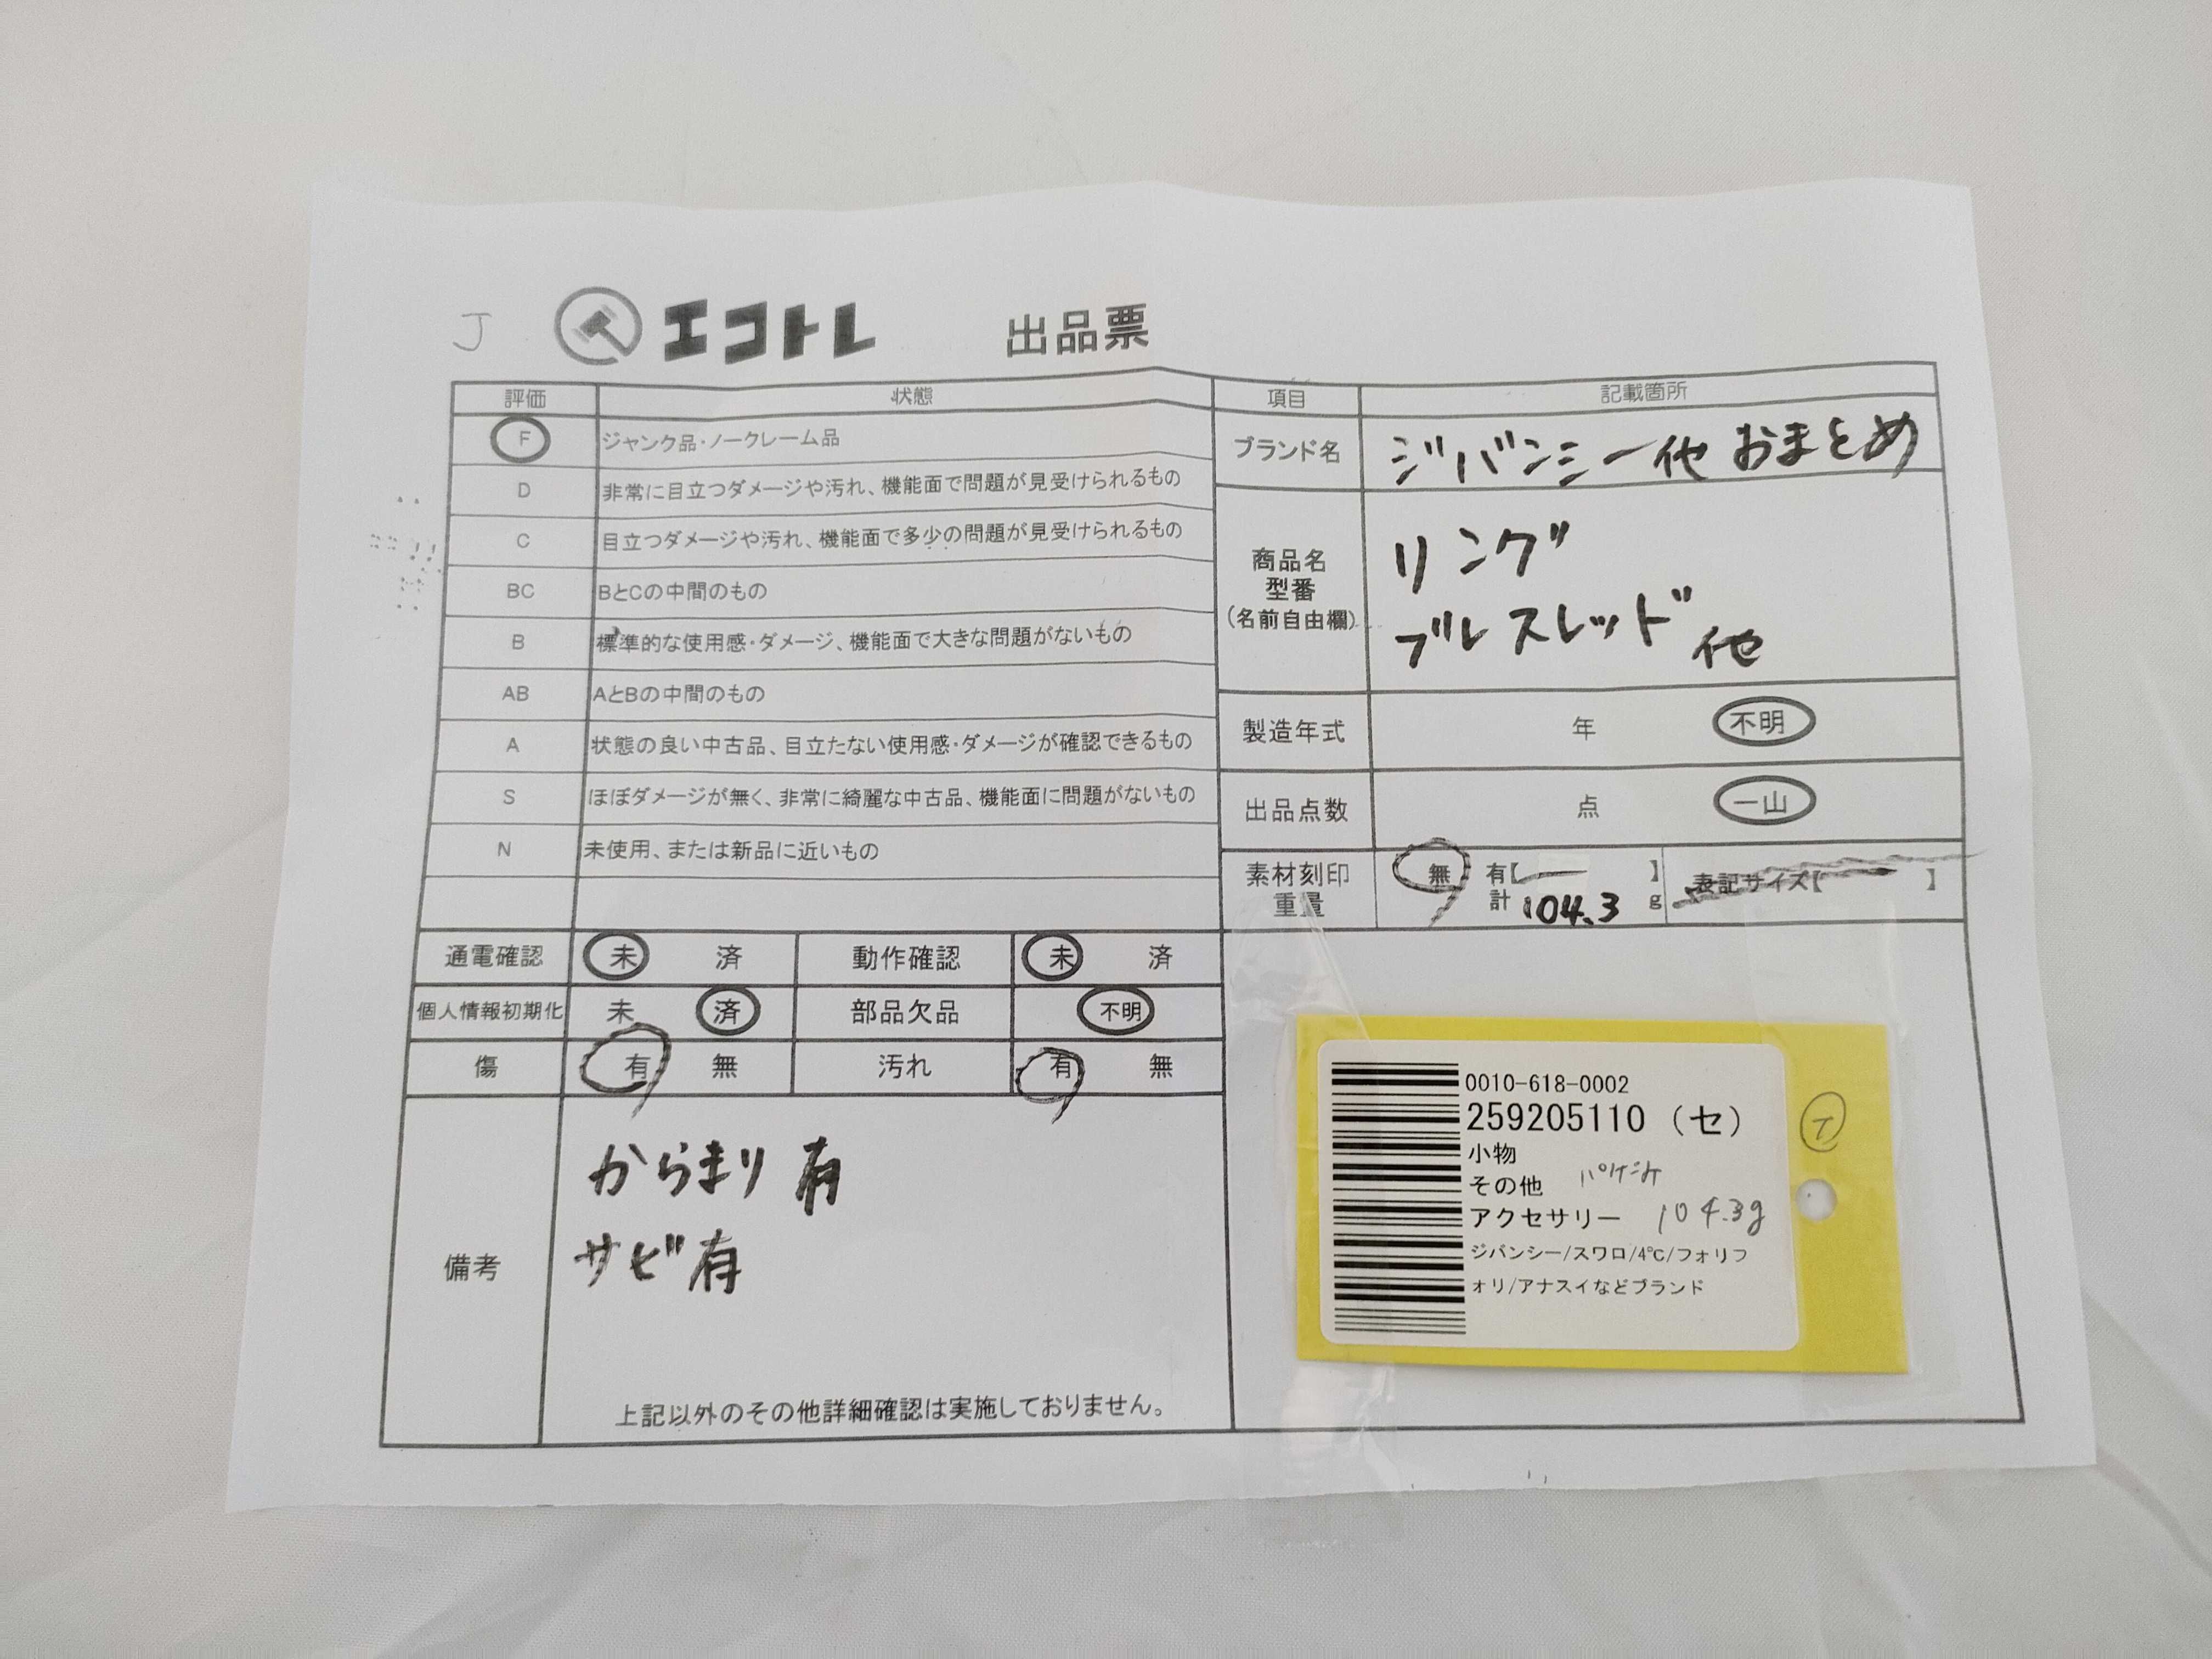 J エコトレ 出品票
評価 状態
F ジャンク品・ノークレーム品
D 非常に目立つダメージや汚れ、機能面で問題が見受けられるもの
C 目立つダメージや汚れ、機能面で多少の問題が見受けられるもの
BC BとCの中間のもの
B 標準的な使用感・ダメージ、機能面で大きな問題がないもの
AB AとBの中間のもの
A 状態の良い中古品、目立たない使用感・ダメージが確認できるもの
S ほぼダメージが無く、非常に綺麗な中古品、機能面に問題がないもの
N 未使用、または新品に近いもの
項目 記載箇所
ブランド名 ジバンシー他 おまとめ
商品名
型番
(名前自由欄)
リング
ブレスレッド 他
製造年式 年 不明
出品点数 点 一山
素材刻印 無 有【 】 表記サイズ【 】
重量 計 104.3 g
通電確認 未 済 動作確認 未 済
個人情報初期化 未 済 部品欠品 不明
傷 有 無 汚れ 有 無
備考
からまり 有
サビ有
上記以外のその他詳細確認は実施しておりません。
0010-618-0002
259205110 (セ)
小物
その他
アクセサリー 104.3g
ジバンシー/スワロ/4℃/フォリフ
ォリ/アナスイなどブランド